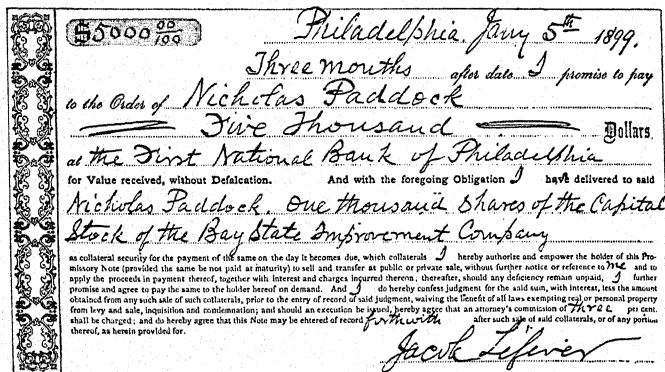 $5000 00/100
Philadelphia, Jany 5th 1899.
Three months after date I promise to pay
to the Order of Nicholas Paddock
Five Thousand Dollars
at the First National Bank of Philadelphia
for Value received, without Defalcation. And with the foregoing Obligation I have delivered to said
Nicholas Paddock One thousand shares of the Capital
Stock of the Bay State Improvement Company
as collateral security for the payment of the same on the day it becomes due, which collaterals I hereby authorize and empower the holder of this Pro-
missory Note (provided the same be not paid at maturity) to sell and transfer at public or private sale, without further notice or reference to me and to
apply the proceeds in payment thereof, together with interest and charges incurred thereon; thereafter, should any deficiency remain unpaid, I further
promise and agree to pay the same to the holder hereof on demand. And I do hereby confess judgment for the said sum, with interest, less the amount
obtained from any such sale of such collaterals, prior to the entry of record of said judgment, waiving the benefit of all laws exempting real or personal property
from levy and sale, inquisition and condemnation; and should an execution be issued, hereby agree that an attorney's commission of three per cent.
shall be charged; and do hereby agree that this Note may be entered of record forthwith after such sale of said collaterals, or of any portion
thereof, as herein provided for.
Jacob Lefever